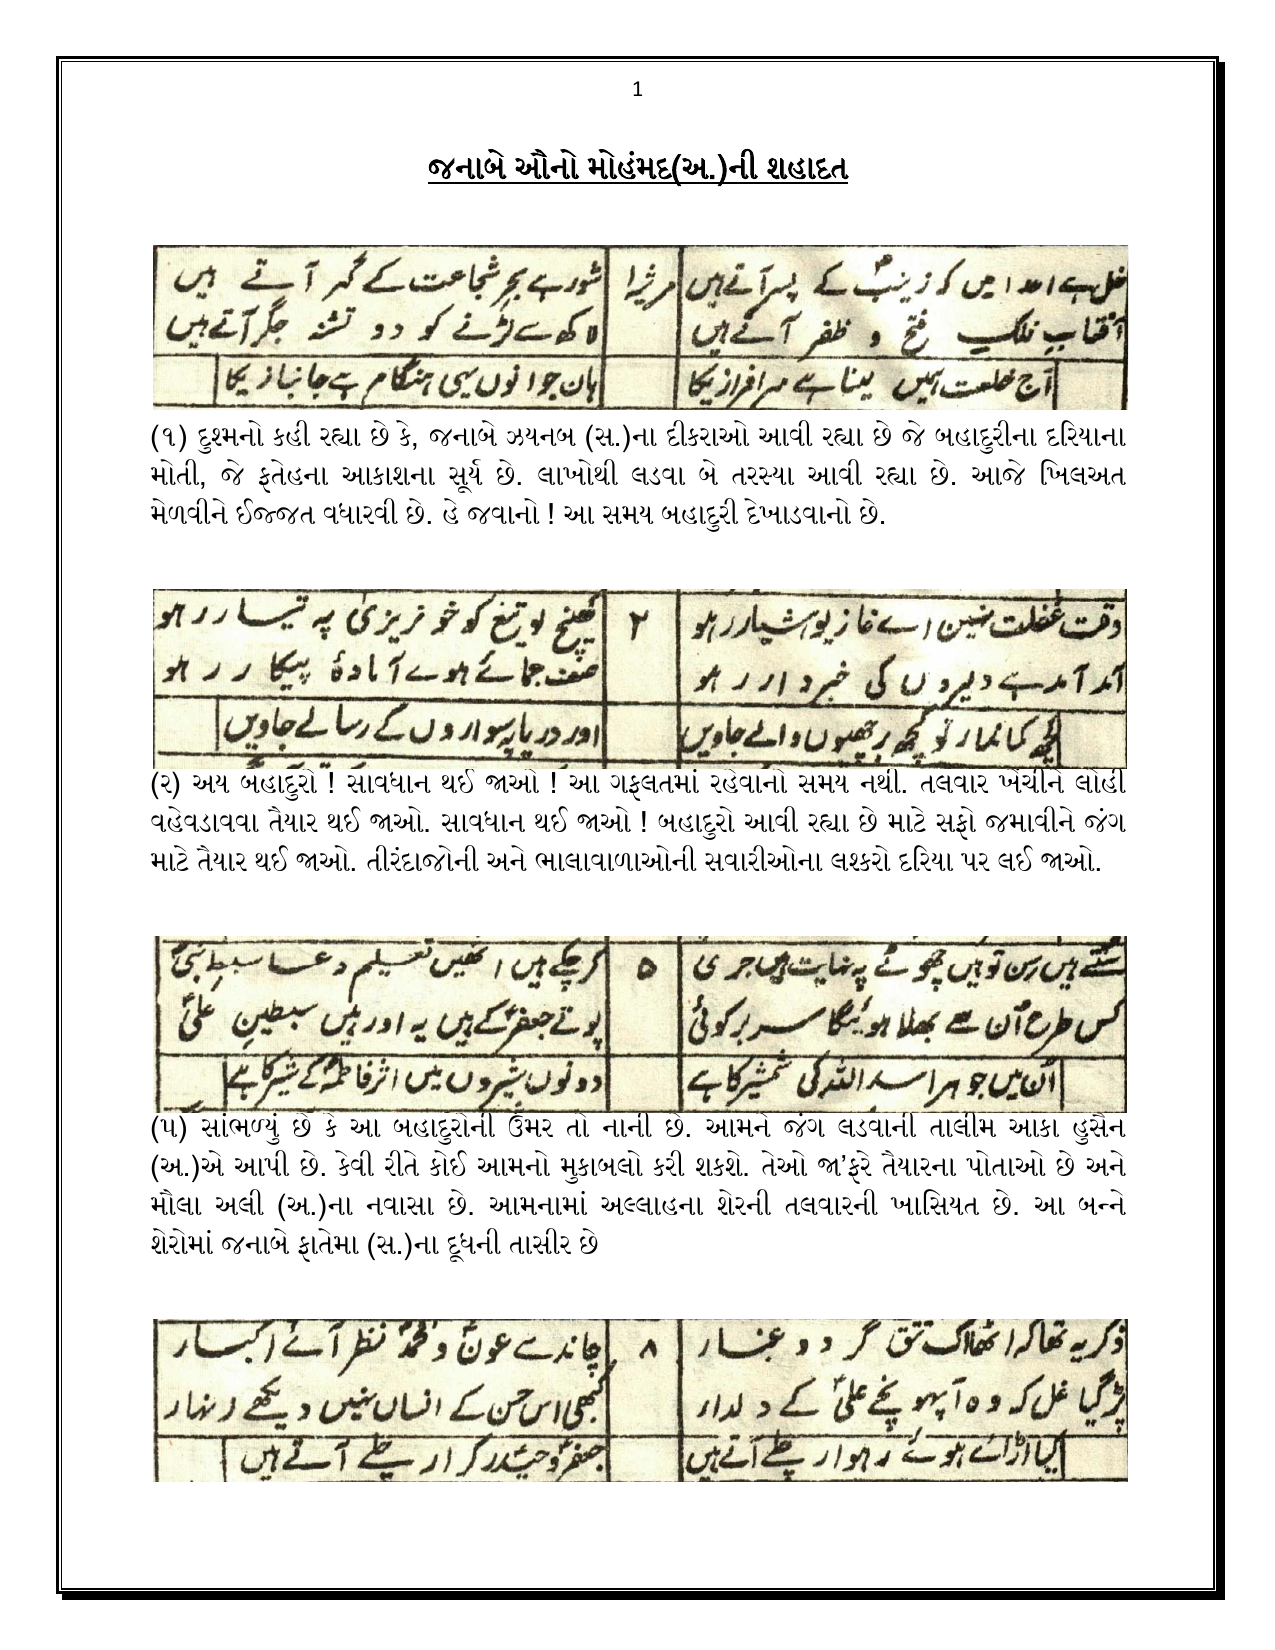 1
જનાબે ઔનો મોહંમદ(અ.)ની શહાદત
غل ہے اعدا میں کہ زینبؑ کے پسر آتے ہیں مرثیہ ۱ شور ہے بحرِ شجاعت کے گہر آتے ہیں
آفتابِ فلکِ فتح و ظفر آتے ہیں لاکھ سے لڑنے کو دو تشنہ جگر آتے ہیں
آج خلعت ہمیں لینا ہے سرافرازیکا ہان جوانوں یہی ہنگام ہے جانبازیکا
(૧) દુશ્મનો કહી રહ્યા છે કે, જનાબે ઝયનબ (સ.)ના દીકરાઓ આવી રહ્યા છે જે બહાદુરીના દરિયાના
મોતી, જે ફતેહના આકાશના સૂર્ય છે. લાખોથી લડવા બે તરસ્યા આવી રહ્યા છે. આજે ખિલઅત
મેળવીને ઈજ્જત વધારવી છે. હે જવાનો ! આ સમય બહાદુરી દેખાડવાનો છે.
وقت غفلت نہین اے غازیو ہشیار رہو ۲ کھینچ لو تیغ کو خونریزی پہ تیار رہو
آمد آمد ہے دلیروں کی خبردار رہو صف جمائے ہوے آمادۂ پیکار رہو
کچھ کماندار تو کچھ برچھیوں والے جاویں اور دریا پہ سواروں کے رسالے جاویں
(૨) અય બહાદુરો ! સાવધાન થઈ જાઓ ! આ ગફલતમાં રહેવાનો સમય નથી. તલવાર ખેંચીને લોહી
વહેવડાવવા તૈયાર થઈ જાઓ. સાવધાન થઈ જાઓ ! બહાદુરો આવી રહ્યા છે માટે સફો જમાવીને જંગ
માટે તૈયાર થઈ જાઓ. તીરંદાજોની અને ભાલાવાળાઓની સવારીઓના લશ્કરો દરિયા પર લઈ જાઓ.
سنتے ہیں سن تو ہیں چھوٹے پہ نہایت ہیں جری ۵ کر چکے ہیں انھیں تعلیم وغا سبطِ نبیؐ
کس طرح اُن سے بھلا ہوئیگا سر بر کوئی پوتے جعفرؑ کے ہیں یہ اور ہیں سبطینِ علیؑ
اُن میں جوہر اسد اللہ کی شمشیر کا ہے دونوں شیروں میں اثر فاطمہؑ کے شیر کا ہے
(૫) સાંભળ્યું છે કે આ બહાદુરોની ઉંમર તો નાની છે. આમને જંગ લડવાની તાલીમ આકા હુસૈન
(અ.)એ આપી છે. કેવી રીતે કોઈ આમનો મુકાબલો કરી શકશે. તેઓ જા’ફરે તૈયારના પોતાઓ છે અને
મૌલા અલી (અ.)ના નવાસા છે. આમનામાં અલ્લાહના શેરની તલવારની ખાસિયત છે. આ બન્ને
શેરોમાં જનાબે ફાતેમા (સ.)ના દૂધની તાસીર છે
ذکر یہ تھا کہ اٹھا اک تتق گرد و غبار ۸ چاند سے عونؑ و محمدؑ نظر آئے اکبار
پڑ گیا غل کہ وہ آ پہونچے علیؑ کے دلدار کبھی اس حسن کے انساں نہیں دیکھے زنہار
کیا اڑاے ہوئے رہوار چلے آتے ہیں جعفرؑ و حیدرؑ کرار چلے آتے ہیں